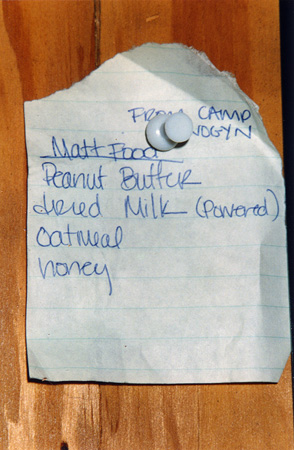 FROM CAMP
Matt Food
Peanut Butter
dried Milk (Powered)
oatmeal
honey